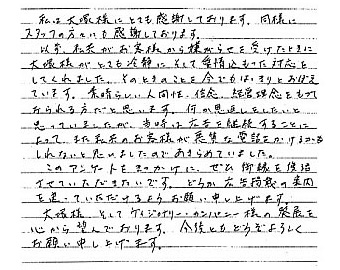 私は大塚様にとても感謝しております。同様に
スタッフの方々にも感謝しております。
以前、私共がお客様から嫌がらせを受けたときに
大塚様がとても冷静に そして愛情込もった対応を
してくれました。そのときのことを今でもはっきりとおぼえ
ています。素晴らしい人間性、信念、経営理念をもって
おられる方だと思います。何か恩返しをしたいと
思っていましたが、当時は広告を継続することに
よって、また私共のお客様が悪質な電話をかけるかも
しれないと思いましたのであきらめていました。
このアンケートをきっかけに、ぜひ御縁を復活
させていただきたいです。どうか広告掲載の案内
を送っていただけるようお願い申し上げます。
大塚様、そして カンパニー様の発展を
心から望んでおります。今後ともどうぞよろしく
お願い申し上げます。